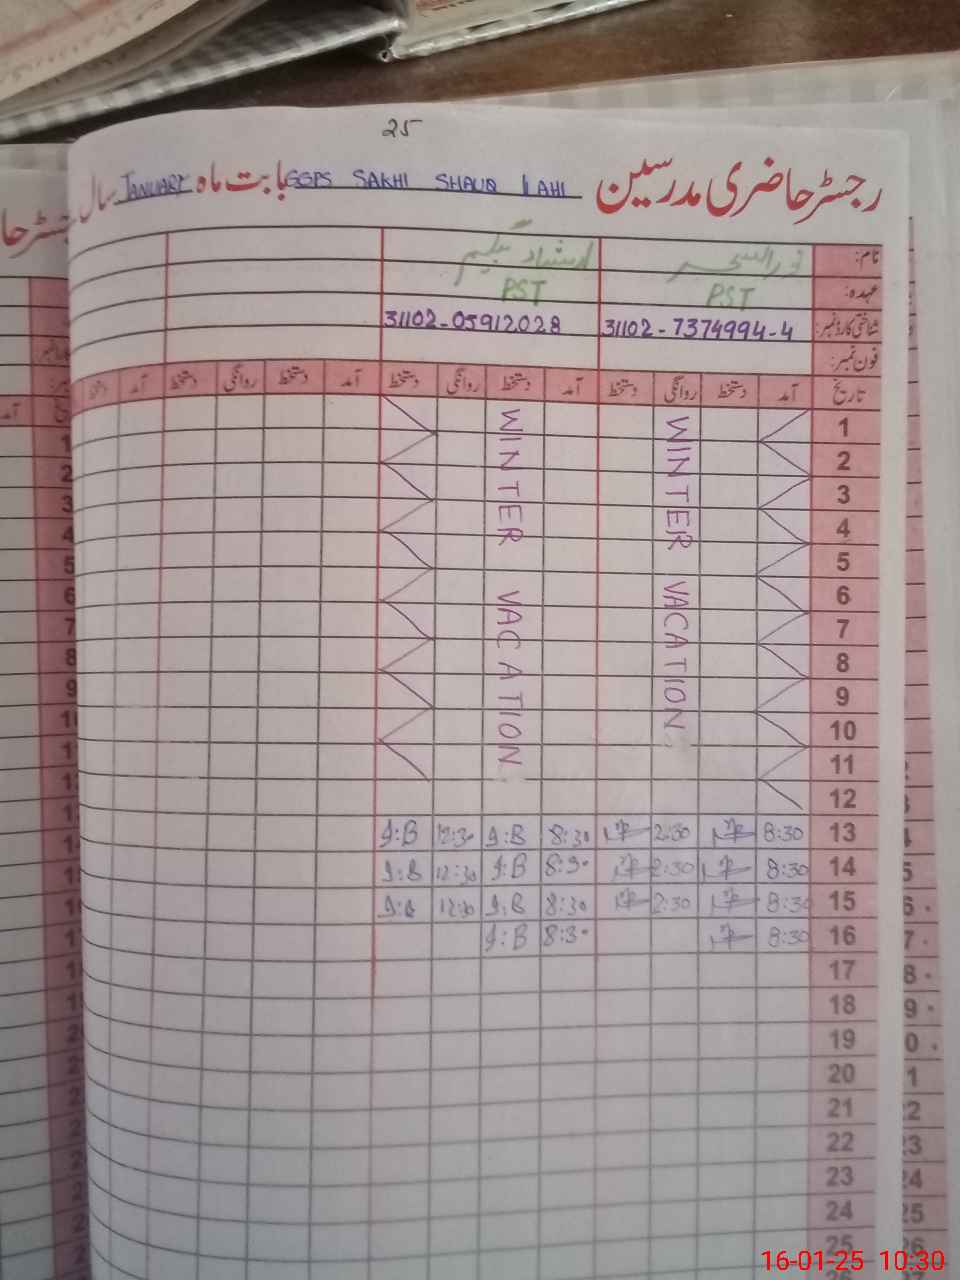 25
رجسٹر حاضری مدرسین GGPS SAKHI SHAUQ ILAHI بابت ماہ JANUARY سال
نام: نورالسحر ارشاد بیگم
عہدہ: PST PST
شناختی کارڈ نمبر: 31102-7374994-4 31102-05912028
فون نمبر:
تاریخ آمد دستخط روانگی دستخط آمد دستخط روانگی دستخط آمد دستخط روانگی دستخط آمد دستخط
WINTER VACATION
WINTER VACATION
1
2
3
4
5
6
7
8
9
10
11
12
13 8:30 2:30 8:30 I:B 12:30 I:B
14 8:30 2:30 8:30 I:B 12:30 I:B
15 8:30 2:30 8:30 I:B 12:30 I:B
16 8:30 8:30 I:B
17
18
19
20
21
22
23
24
25
16-01-25 10:30